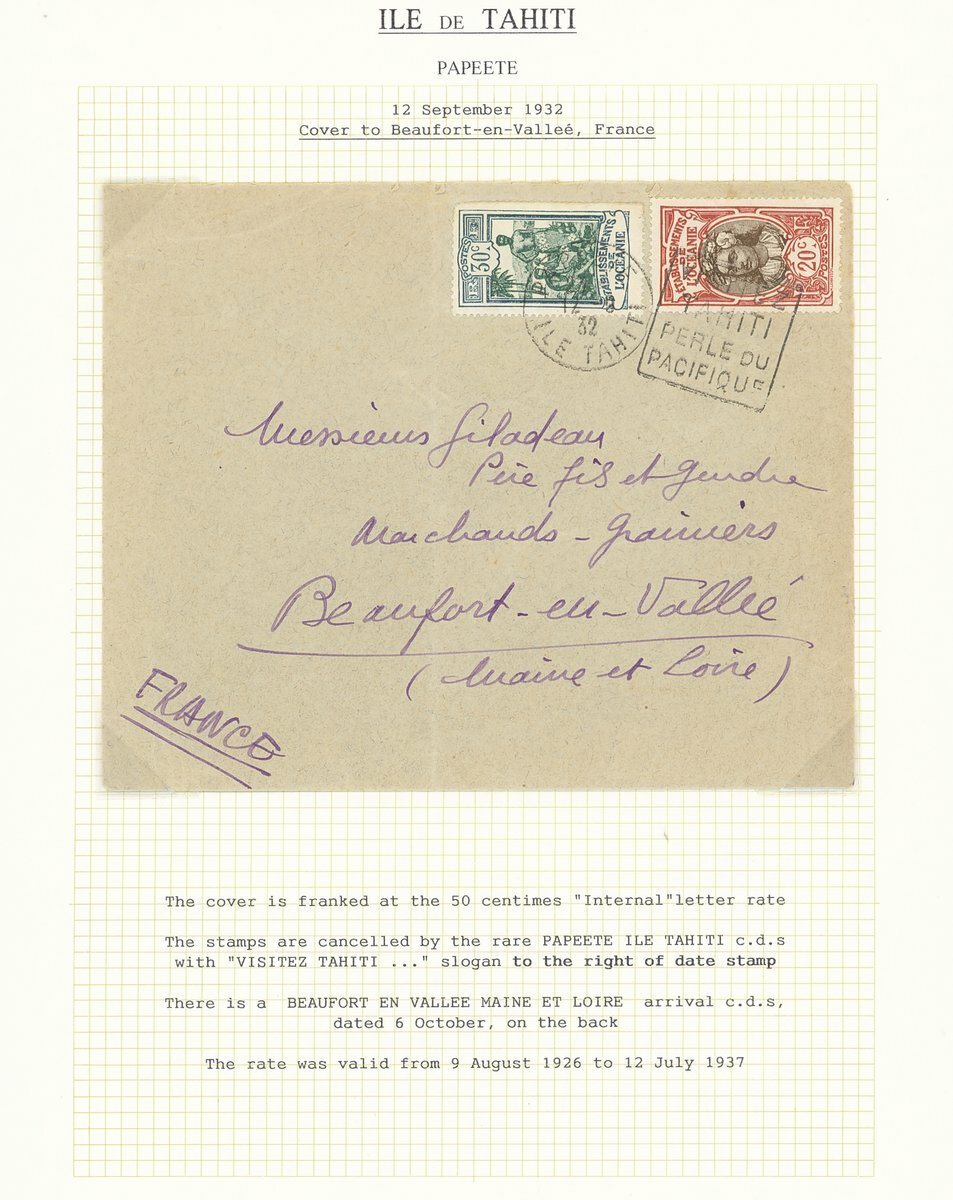 ILE DE TAHITI
PAPEETE
12 September 1932
Cover to Beaufort-en-Valleé, France
POSTES 30c ETABLISSEMENTS DE L'OCÉANIE
ETABLISSEMENTS DE L'OCÉANIE 20c POSTES
12
32
ILE TAHITI
TAHITI
PERLE DU
PACIFIQUE
Messieurs Giladeau
Père fils et Gendre
Marchands - Grainiers
Beaufort-en-Vallié
(Maine et Loire)
FRANCE
The cover is franked at the 50 centimes "Internal"letter rate
The stamps are cancelled by the rare PAPEETE ILE TAHITI c.d.s
with "VISITEZ TAHITI ..." slogan to the right of date stamp
There is a BEAUFORT EN VALLEE MAINE ET LOIRE arrival c.d.s,
dated 6 October, on the back
The rate was valid from 9 August 1926 to 12 July 1937